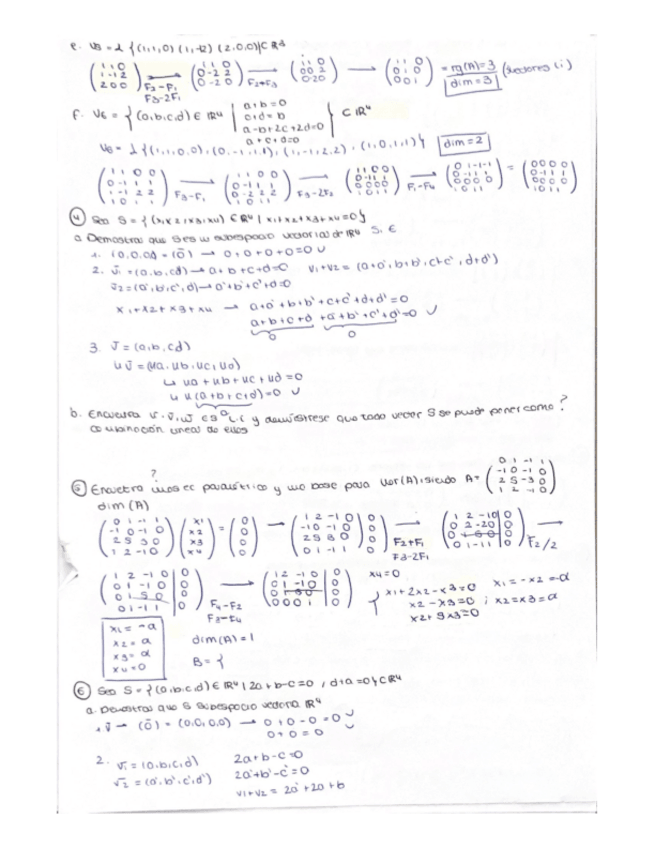 e. V5 = L {(1,1,0) (1,-1,2) (2,0,0)} C R³
(1 1 0 / 1 -1 2 / 2 0 0) → F2-F1 F3-2F1 (1 1 0 / 0 -2 2 / 0 -2 0) → F2+F3 → = rg(A)=3 (vectores li)
dim = 3
F. V6 = {(a,b,c,d) ∈ R⁴ | a+b=0
c+d=b
a-b+2c+2d=0
a+c+d=0 } C R⁴
V6 = L {(1,1,0,0), (0,-1,1,1), (1,-1,2,2), (1,0,1,1)} dim=2
(1 1 0 0 / 0 -1 1 1 / 1 -1 2 2 / 1 0 1 1) → F3-F1 (1 1 0 0 / 0 -1 1 1 / 0 -2 2 2 / 1 0 1 1) → F3-2F2 (1 1 0 0 / 0 -1 1 1 / 0 0 0 0 / 1 0 1 1) → F1-F4 (0 1 -1 -1 / 0 -1 1 1 / 0 0 0 0 / 1 0 1 1) = (0 0 0 0 / 0 -1 1 1 / 0 0 0 0 / 1 0 1 1)
4 Sea S = {(x1,x2,x3,x4) ∈ R⁴ / x1+x2+x3+x4=0}
a. Demostrar que S es un subespacio vectorial de R⁴
1. (0,0,0,0) = (0̄) → 0+0+0+0=0 ✓
2. v̄1 = (a,b,c,d) → a+b+c+d=0 v1+v2 = (a+a', b+b', c+c', d+d')
v̄2 = (a',b',c',d') → a'+b'+c'+d'=0
x1+x2+x3+x4 → a+a'+b+b'+c+c'+d+d'=0
a+b+c+d + a'+b'+c'+d'=0 ✓
0 0
3. v̄ = (a,b,c,d)
u v̄ = (ua, ub, uc, ud)
↳ ua+ub+uc+ud=0
↳ u(a+b+c+d)=0 ✓
0
b. Encuentra ū, v̄, w̄ ∈ S L.I. y demuéstrese que todo vector S se puede poner como ?
combinación lineal de ellos
?
5 Encuentra unas ec paramétricas y una base para Ker(A), siendo A = (0 1 -1 1 / -1 0 -1 0 / 2 5 -3 0 / 1 2 -1 0)
dim (A)
→ F2+F1 F3-2F1 → F2/2
→ F4-F2 F3-F4
x4=0
{ x1+2x2-x3=0
x2-x3=0 ; x2=x3=α
x1=-x2=-α
x1 = -α
x2 = α
x3 = α
x4 = 0
dim(A)=1
B = {
6 Sea S = {(a,b,c,d) ∈ R⁴ / 2a+b-c=0, d+a=0} C R⁴
a. Demostrar que S subespacio vectorial R⁴
1. v̄ → (0̄) = (0,0,0,0) → 0+0-0=0 ✓
0+0=0 ✓
2. v̄1 = (a,b,c,d) 2a+b-c=0
v̄2 = (a',b',c',d') 2a'+b'-c'=0
v1+v2 = 2a'+2a+b